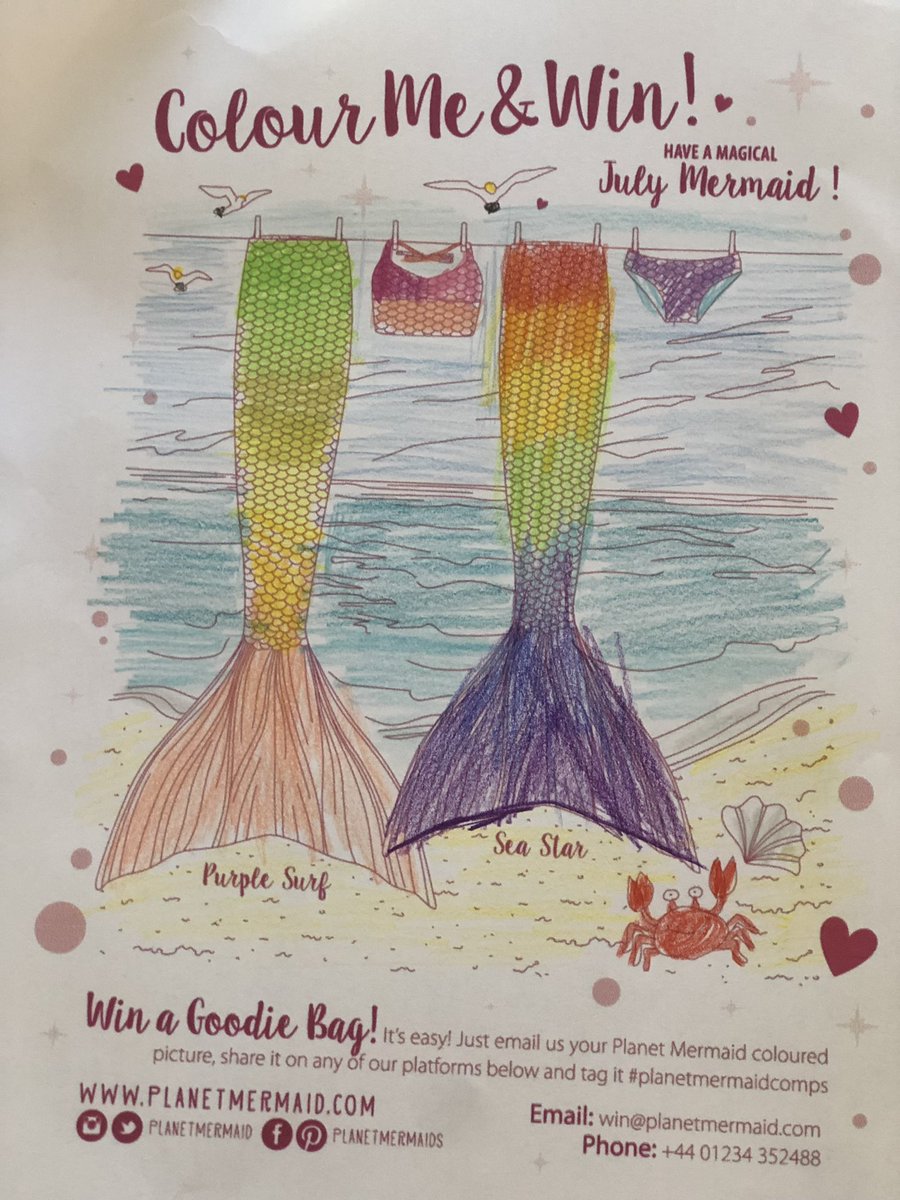 Colour Me & Win!
HAVE A MAGICAL
July Mermaid !
Sea Star
Purple Surf
Win a Goodie Bag! It's easy! Just email us your Planet Mermaid coloured
picture, share it on any of our platforms below and tag it #planetmermaidcomps
WWW.PLANETMERMAID.COM
PLANETMERMAID PLANETMERMAIDS
Email: win@planetmermaid.com
Phone: +44 01234 352488